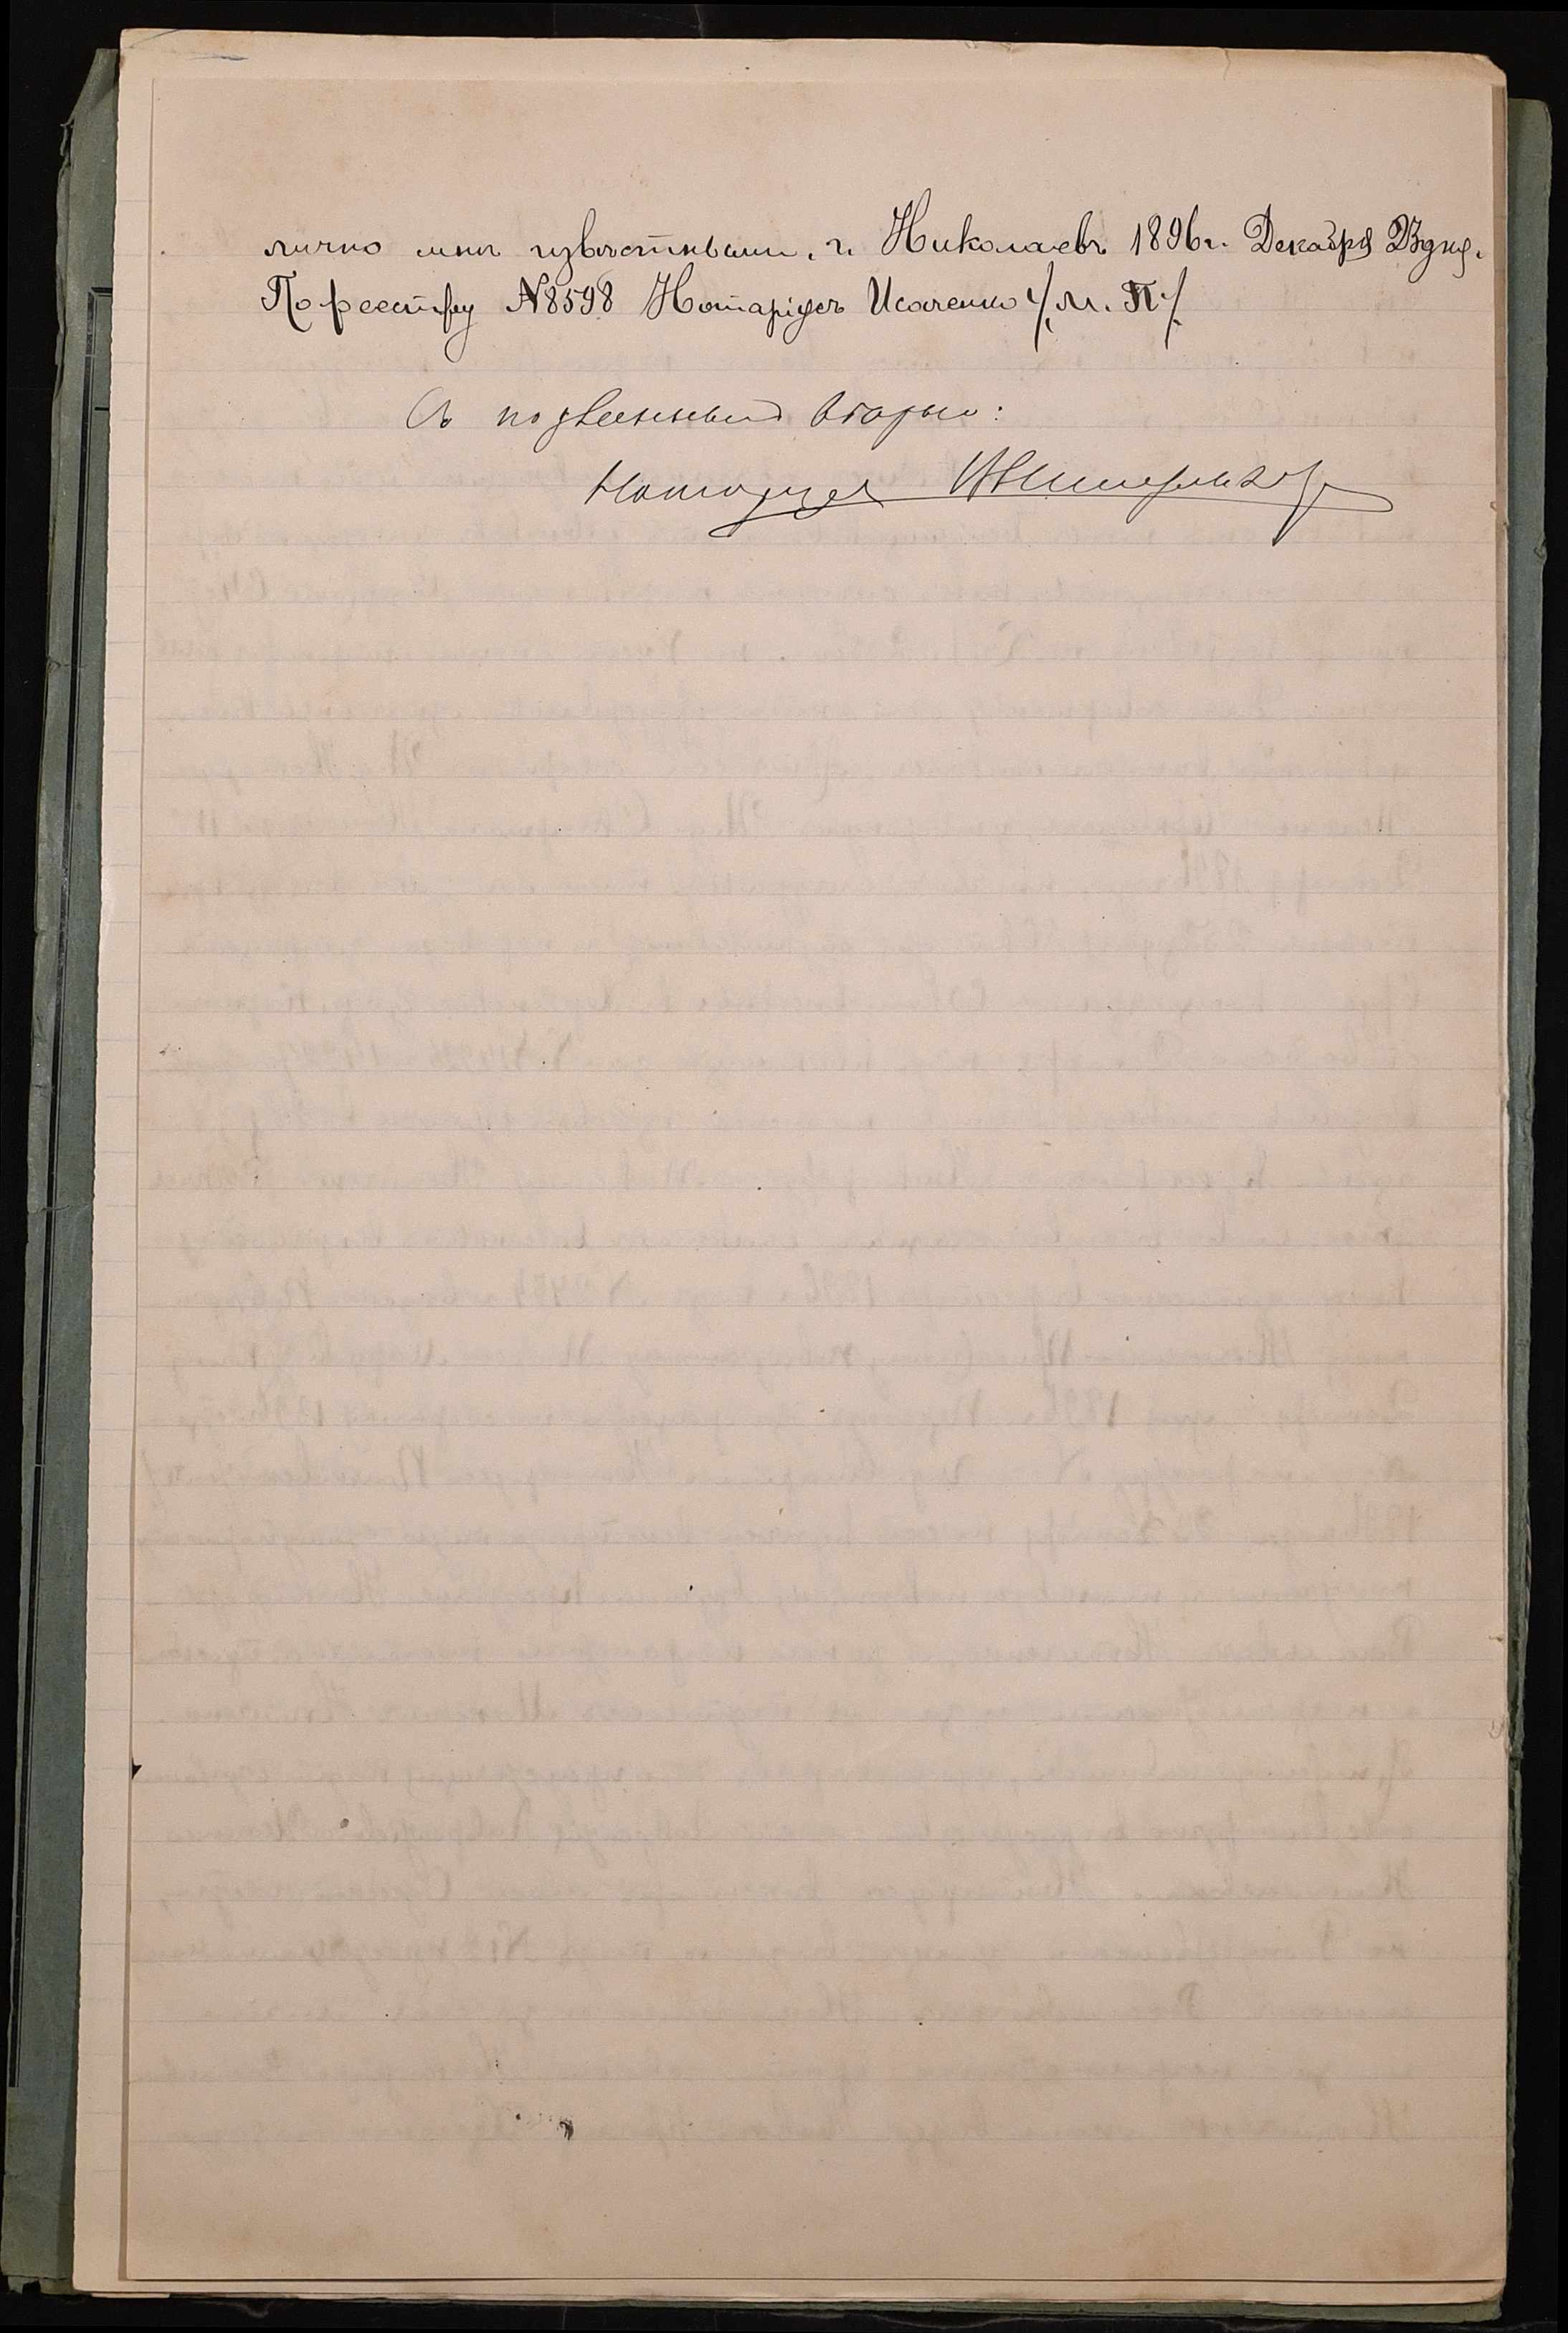 лично мнѣ извѣстными. г. Николаевъ 1896 г. Декабря 23 дня.
По реестру №8598 Нотаріусъ Исаченко /м. П./
Съ подлиннымъ вѣрно:
Нотаріусъ